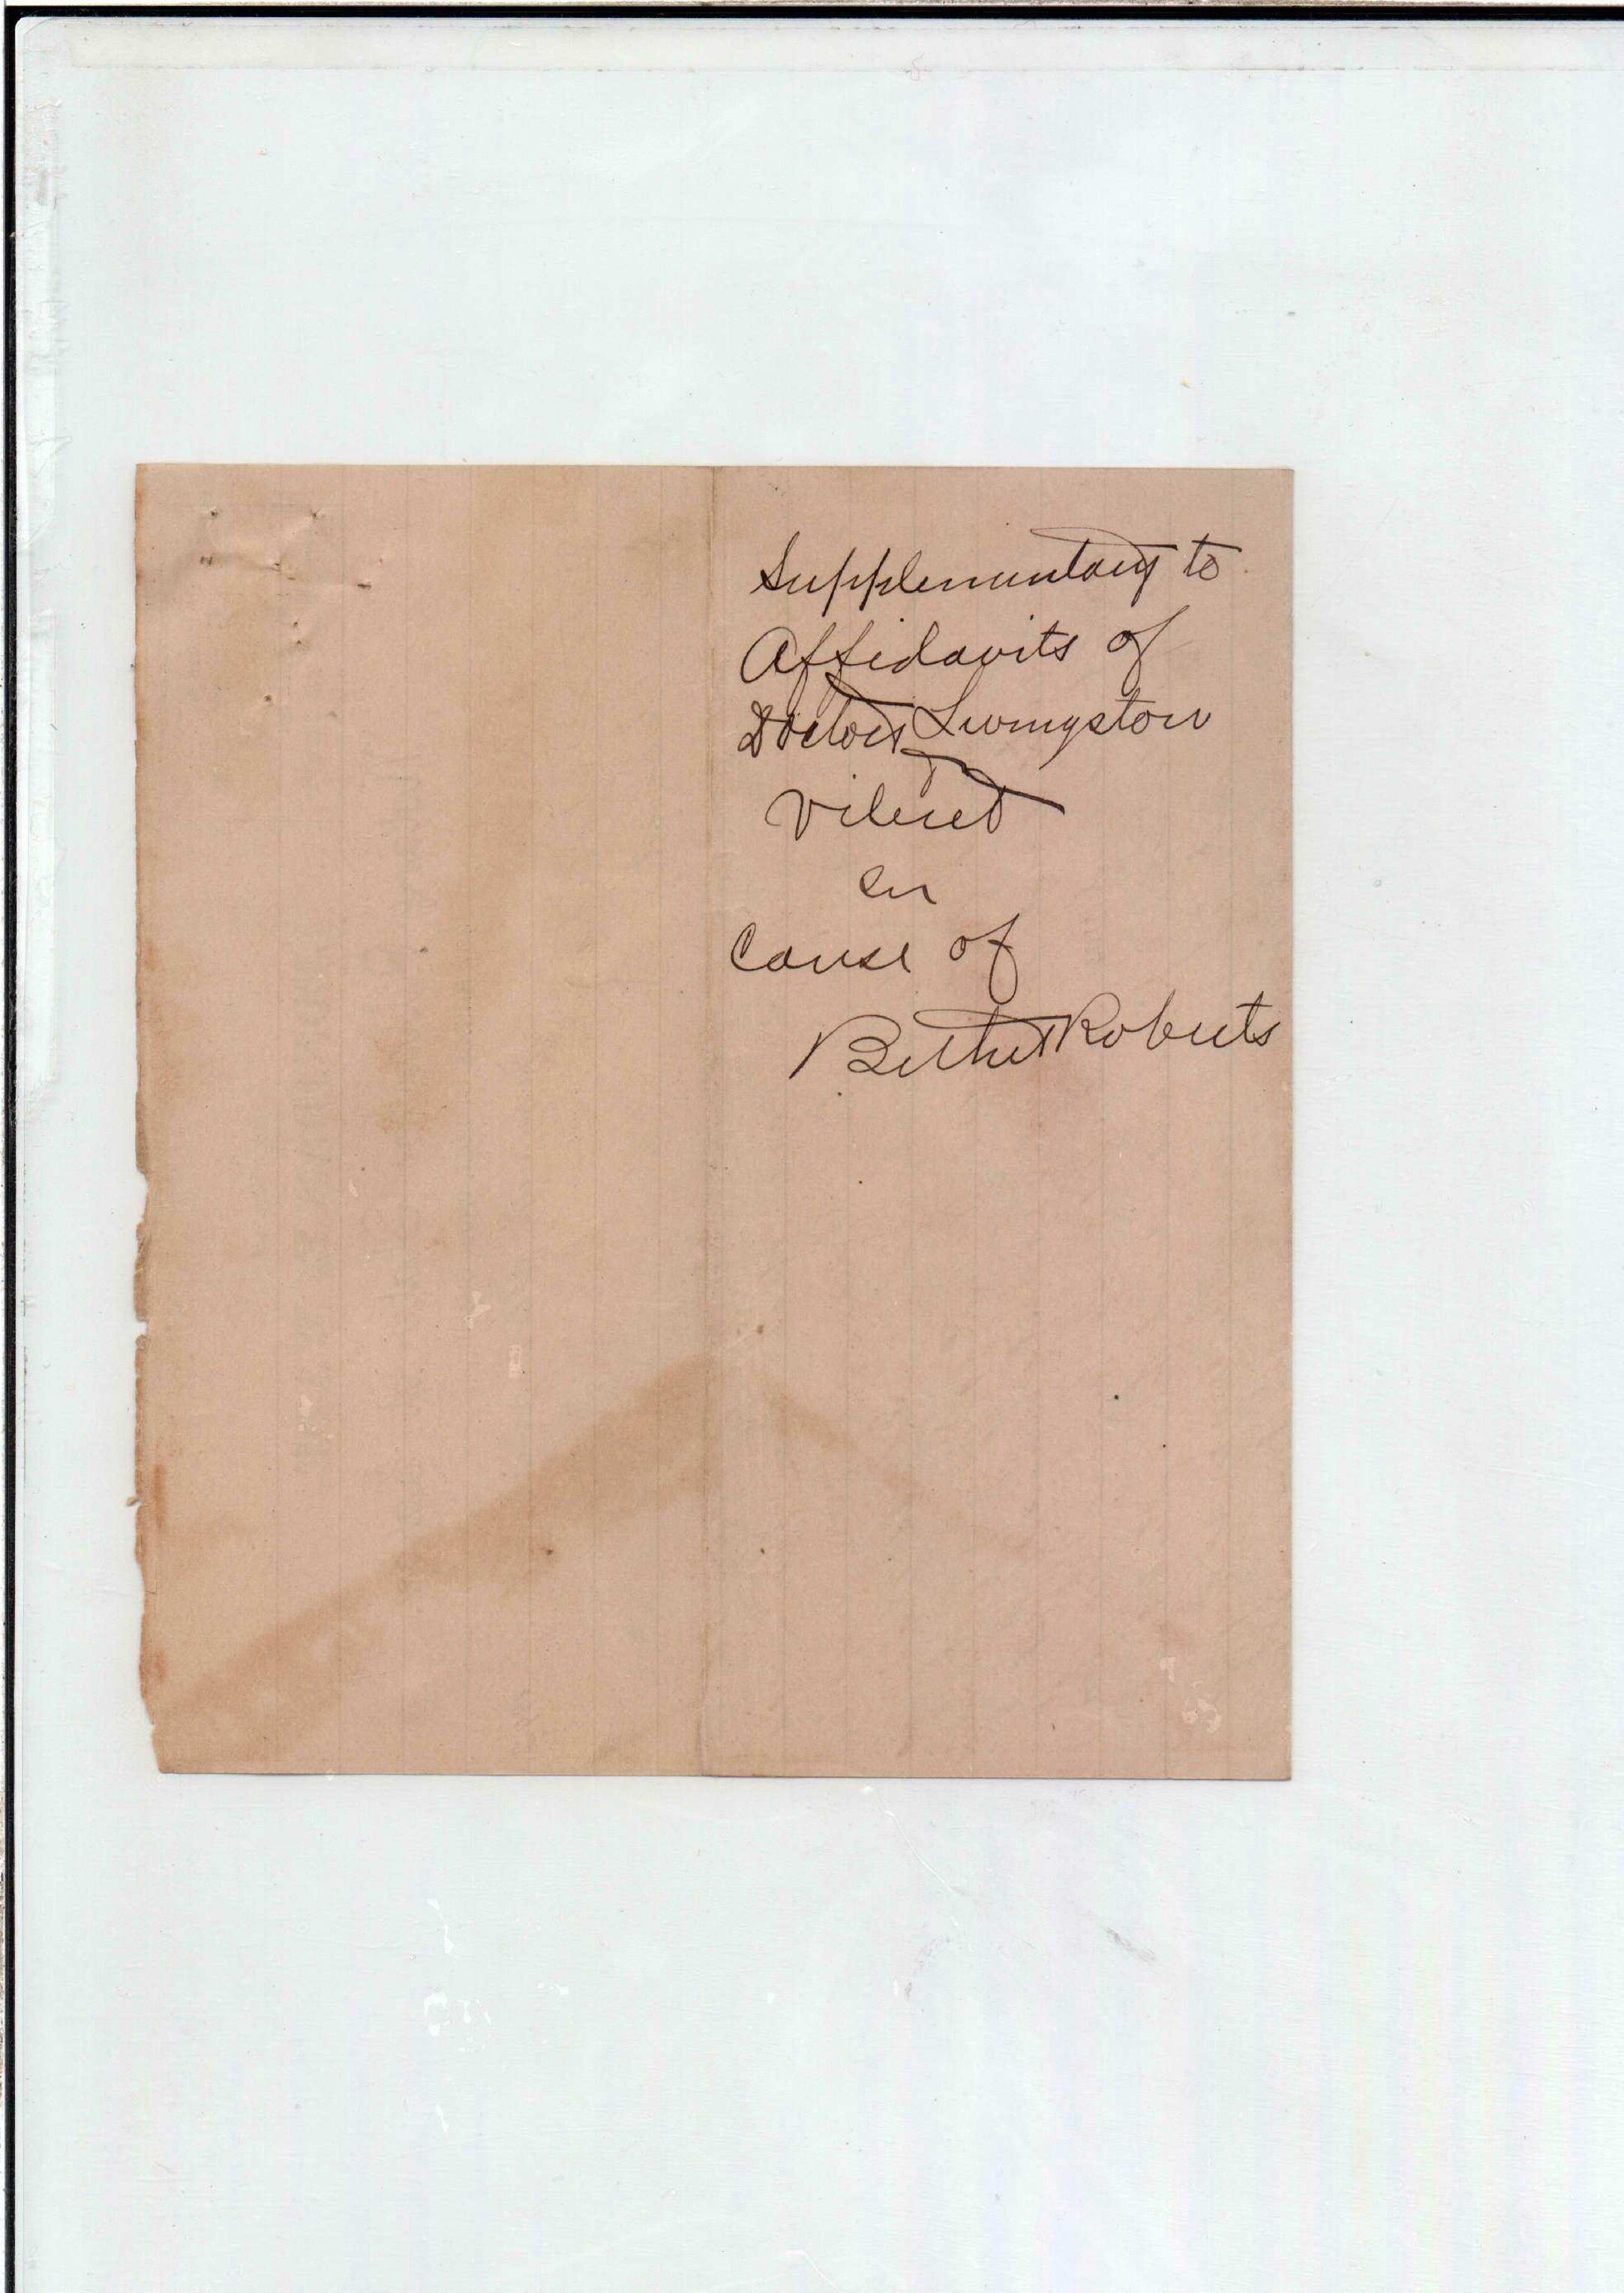 Supplementary to
Affidavits of
Doctors Livingston
in
Cause of
Roberts